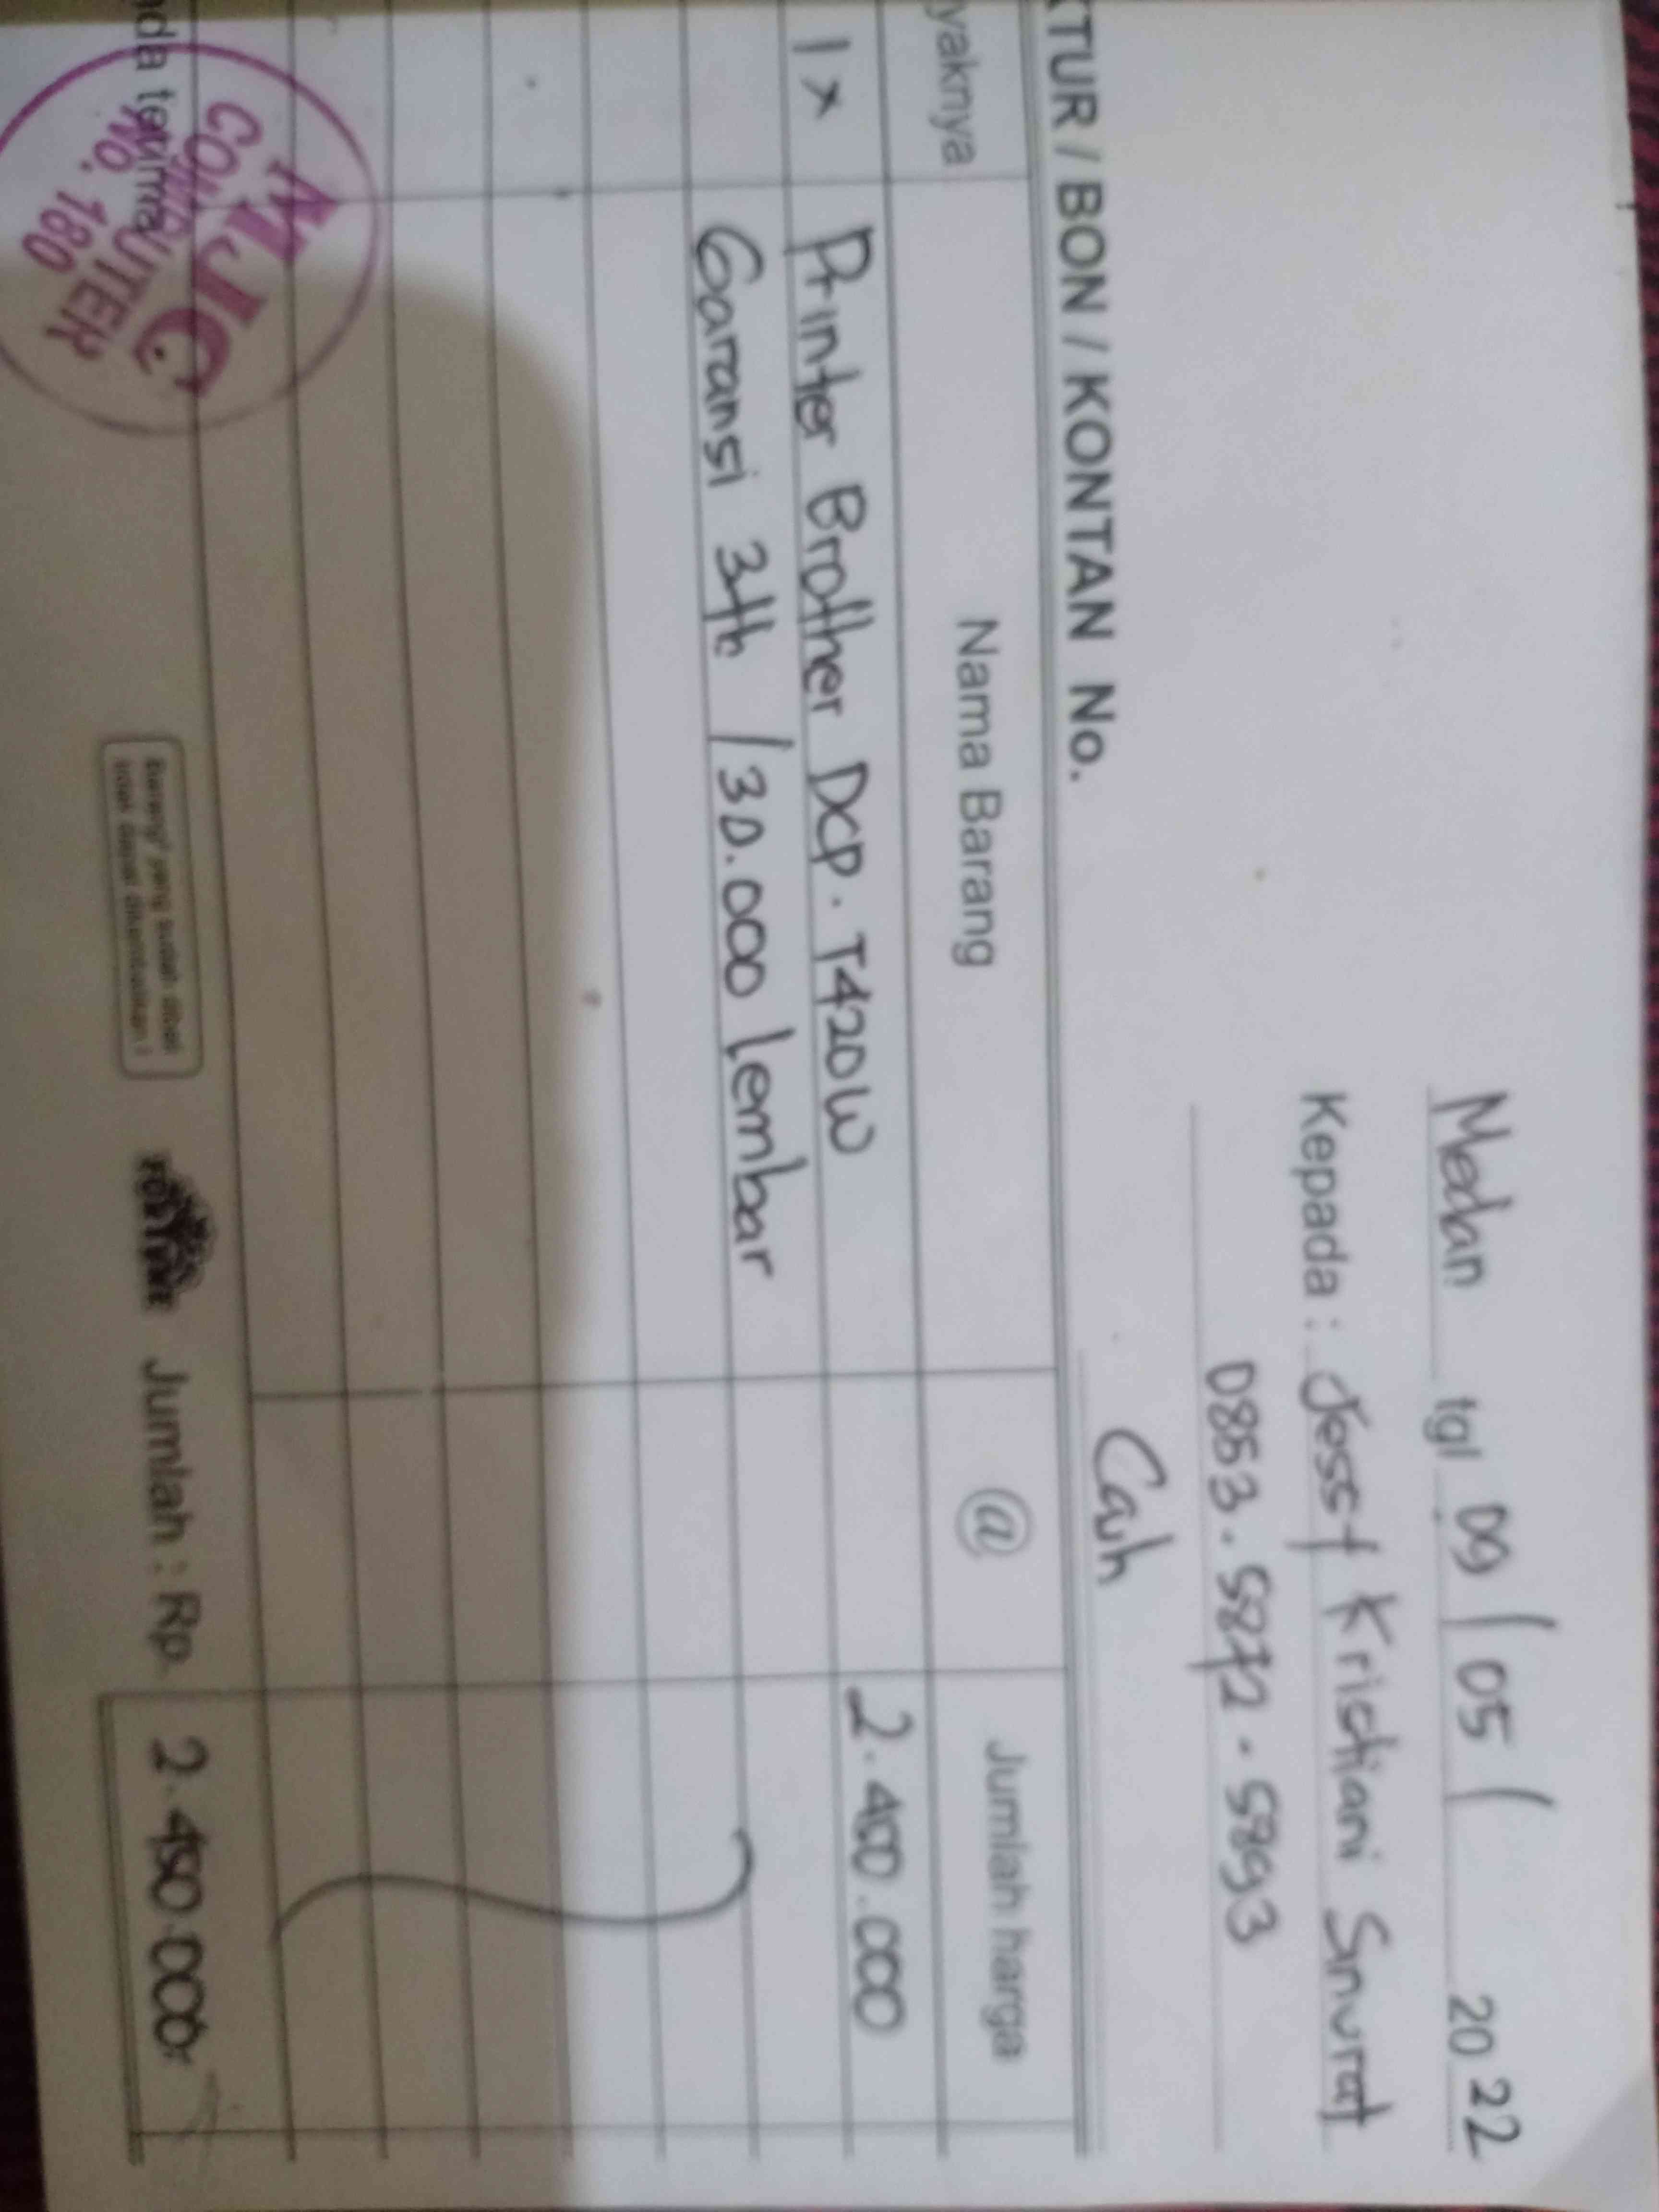 Medan tgl 09 / 05 / 2022
Kepada : Jessy Kristiani Sinurat
0853.5872.5893
Cash
KTUR / BON / KONTAN No.
yaknya Nama Barang @ Jumlah harga
1 x Printer Brother DCP. T420W 2.400.000
Garansi 3th / 30.000 lembar
nda terima
Barang² yang sudah dibeli
tidak dapat dikembalikan !
Jumlah : Rp. 2.450.000
MJC
COMPUTER
NO. 180